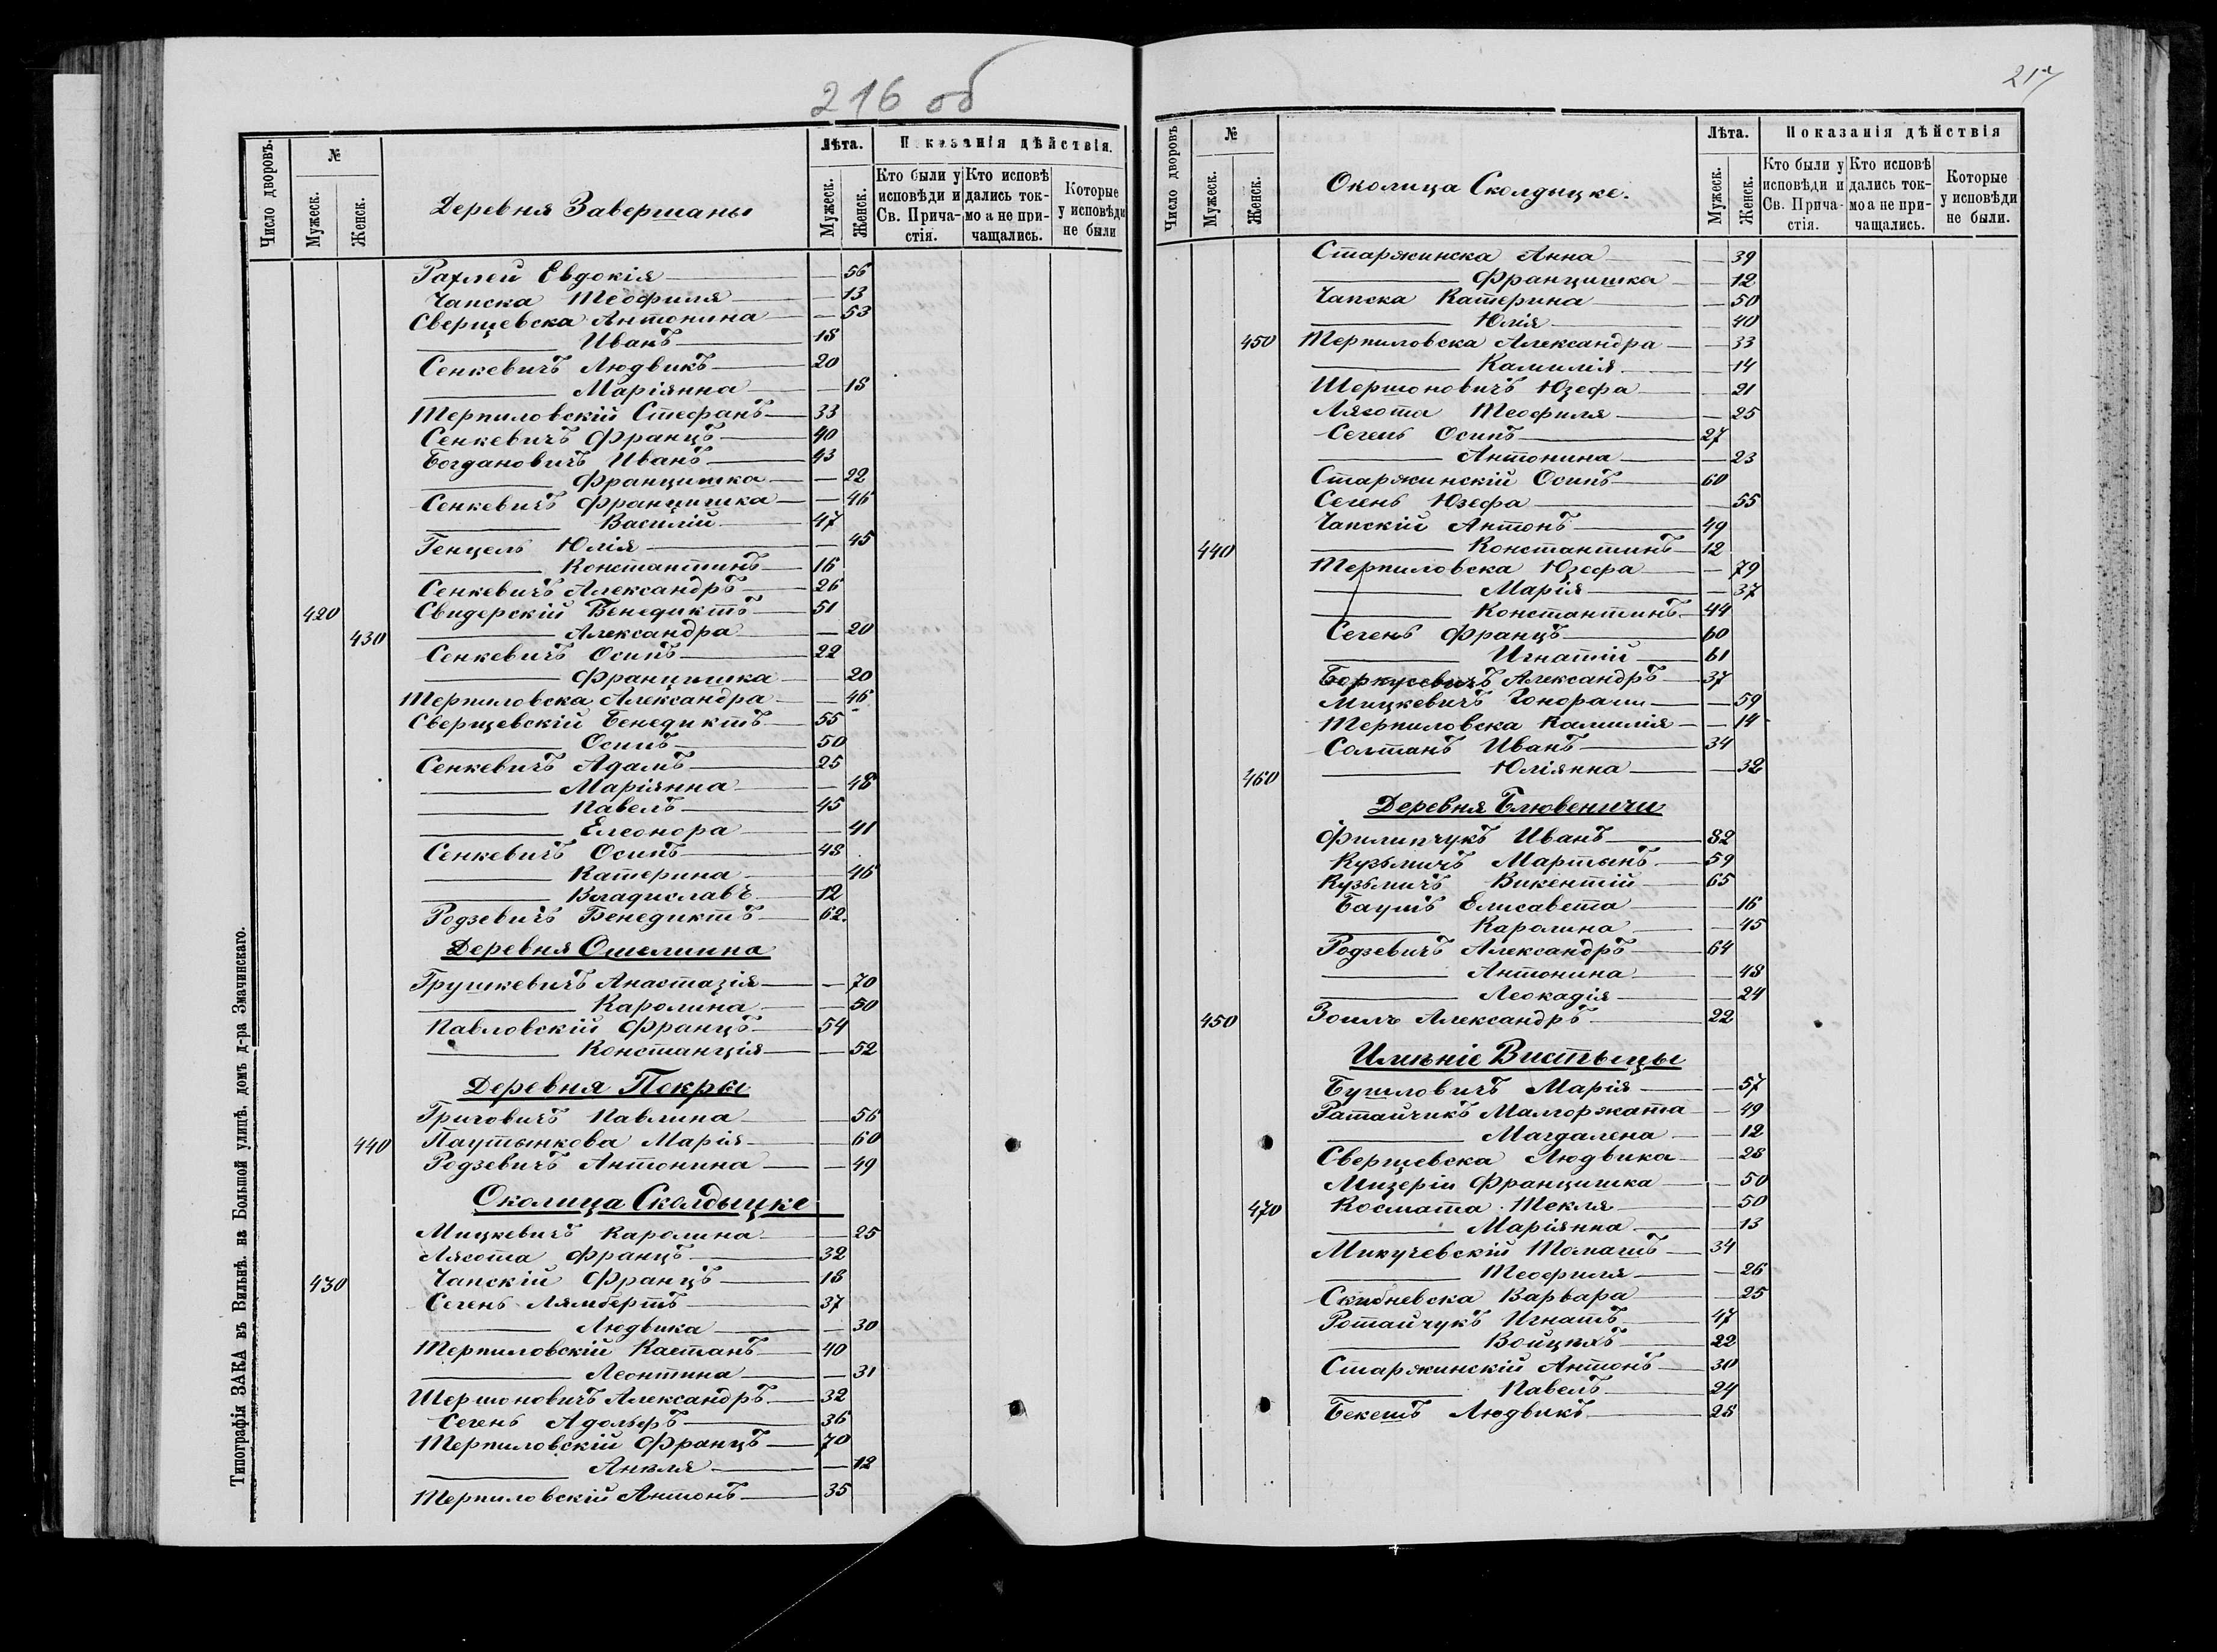 216 об
Число дворовъ.
№
Мужеск.
Женск.
Деревня Завершаны
Лѣта.
Мужеск.
Женск.
Показанія дѣйствія.
Кто были у исповѣди и Св. Прича-стія.
Кто исповѣ дались ток-мо а не при-чащались.
Которые у исповѣди не были
Рахлей Евдокія — 56
Чапска Теофиля — 13
Сверщевска Антонина — 53
— Иванъ 18
Сенкевичъ Людвикъ 20
— Маріянна — 18
Терпиловскій Стефанъ 33
Сенкевичъ Францъ 40
Богдановичъ Иванъ 43
— Францишка — 22
Сенкевичъ Францишка — 46
— Василій 47
Генцель Юлія — 45
— Константинъ 16
Сенкевичъ Александръ 26
420 Свидерскій Бенедиктъ 51
430 — Александра — 20
Сенкевичъ Осипъ 22
— Францишка — 20
Терпиловска Александра — 46
Сверщевскій Бенедиктъ 55
— Осипъ 50
Сенкевичъ Адамъ 25
— Маріянна — 48
— Павелъ 45
— Елеонора — 41
Сенкевичъ Осипъ 48
— Катерина — 46
— Владиславъ 12
Родзевичъ Бенедиктъ 62.
Деревня Ошмина
Грушкевичъ Анастазія — 70
— Каролина — 50
Павловскій Францъ 54
— Констанція — 52
Деревня Покры
Григовичъ Павлина — 56
440 Паутынкова Марія — 60
Родзевичъ Антонина — 49
Околица Сколдыцке
Мицкевичъ Каролина — 25
Лясота Францъ 32
430 Чапскій Францъ 18
Сегень Лямбертъ 37
— Людвика — 30
Терпиловскій Каетанъ 40
— Леонтина — 31
Шершоновичъ Александръ 32
Сегень Адольфъ 36
Терпиловскій Францъ 70
— Анеля — 12
Терпиловскій Антонъ 35
Типографія ЗАКА въ Вильнѣ. на Большой улицѣ. домъ д-ра Змачинскаго.
217
Число дворовъ
№
Мужеск.
Женск.
Околица Сколдыцке.
Лѣта.
Мужеск.
Женск.
Показанія дѣйствія
Кто были у исповѣди и Св. Прича-стія.
Кто исповѣ дались ток-мо а не при-чащались.
Которые у исповѣди не были.
Старжинска Анна — 39
— Францишка — 12
Чапска Катерина — 50
— Юлія — 40
450 Терпиловска Александра — 33
— Камилія — 14
Шершоновичъ Юзефа — 21
Лясота Теофиля — 25
Сегень Осипъ 27
— Антонина — 23
Старжинскій Осипъ 60
Сегень Юзефа — 55
Чапскій Антонъ 49
440 — Константинъ 12
Терпиловска Юзефа — 79
— Марія — 37
— Константинъ 44
Сегень Францъ 60
— Игнатій 61
Боркусевичъ Александръ 37
Мицкевичъ Гонората — 59
Терпиловска Камилія — 14
Солтанъ Иванъ 34
460 — Юліянна — 32
Деревня Блювеничи
Филипчукъ Иванъ 32
Кузьмичъ Мартынъ 59
Кузьмичъ Викентій 65
Баушъ Елисавета — 16
— Каролина — 45
Родзевичъ Александръ 64
— Антонина — 48
— Леокадія — 24
450 Зоилъ Александръ 22
Имѣніе Вистычы
Бушловичъ Марія — 57
Ратайчикъ Малгоржата — 49
— Магдалена — 12
Сверщевска Людвика — 28
Мизерій Францишка — 50
470 Космата Текля — 50
— Маріянна — 13
Микучевскій Томашъ 34
— Теофиля — 26
Скибневска Варвара — 25
Ротайчукъ Игнатъ 47
— Войцѣхъ 22
Старжинскій Антонъ 30
— Павелъ 24
Бекешъ Людвикъ 28